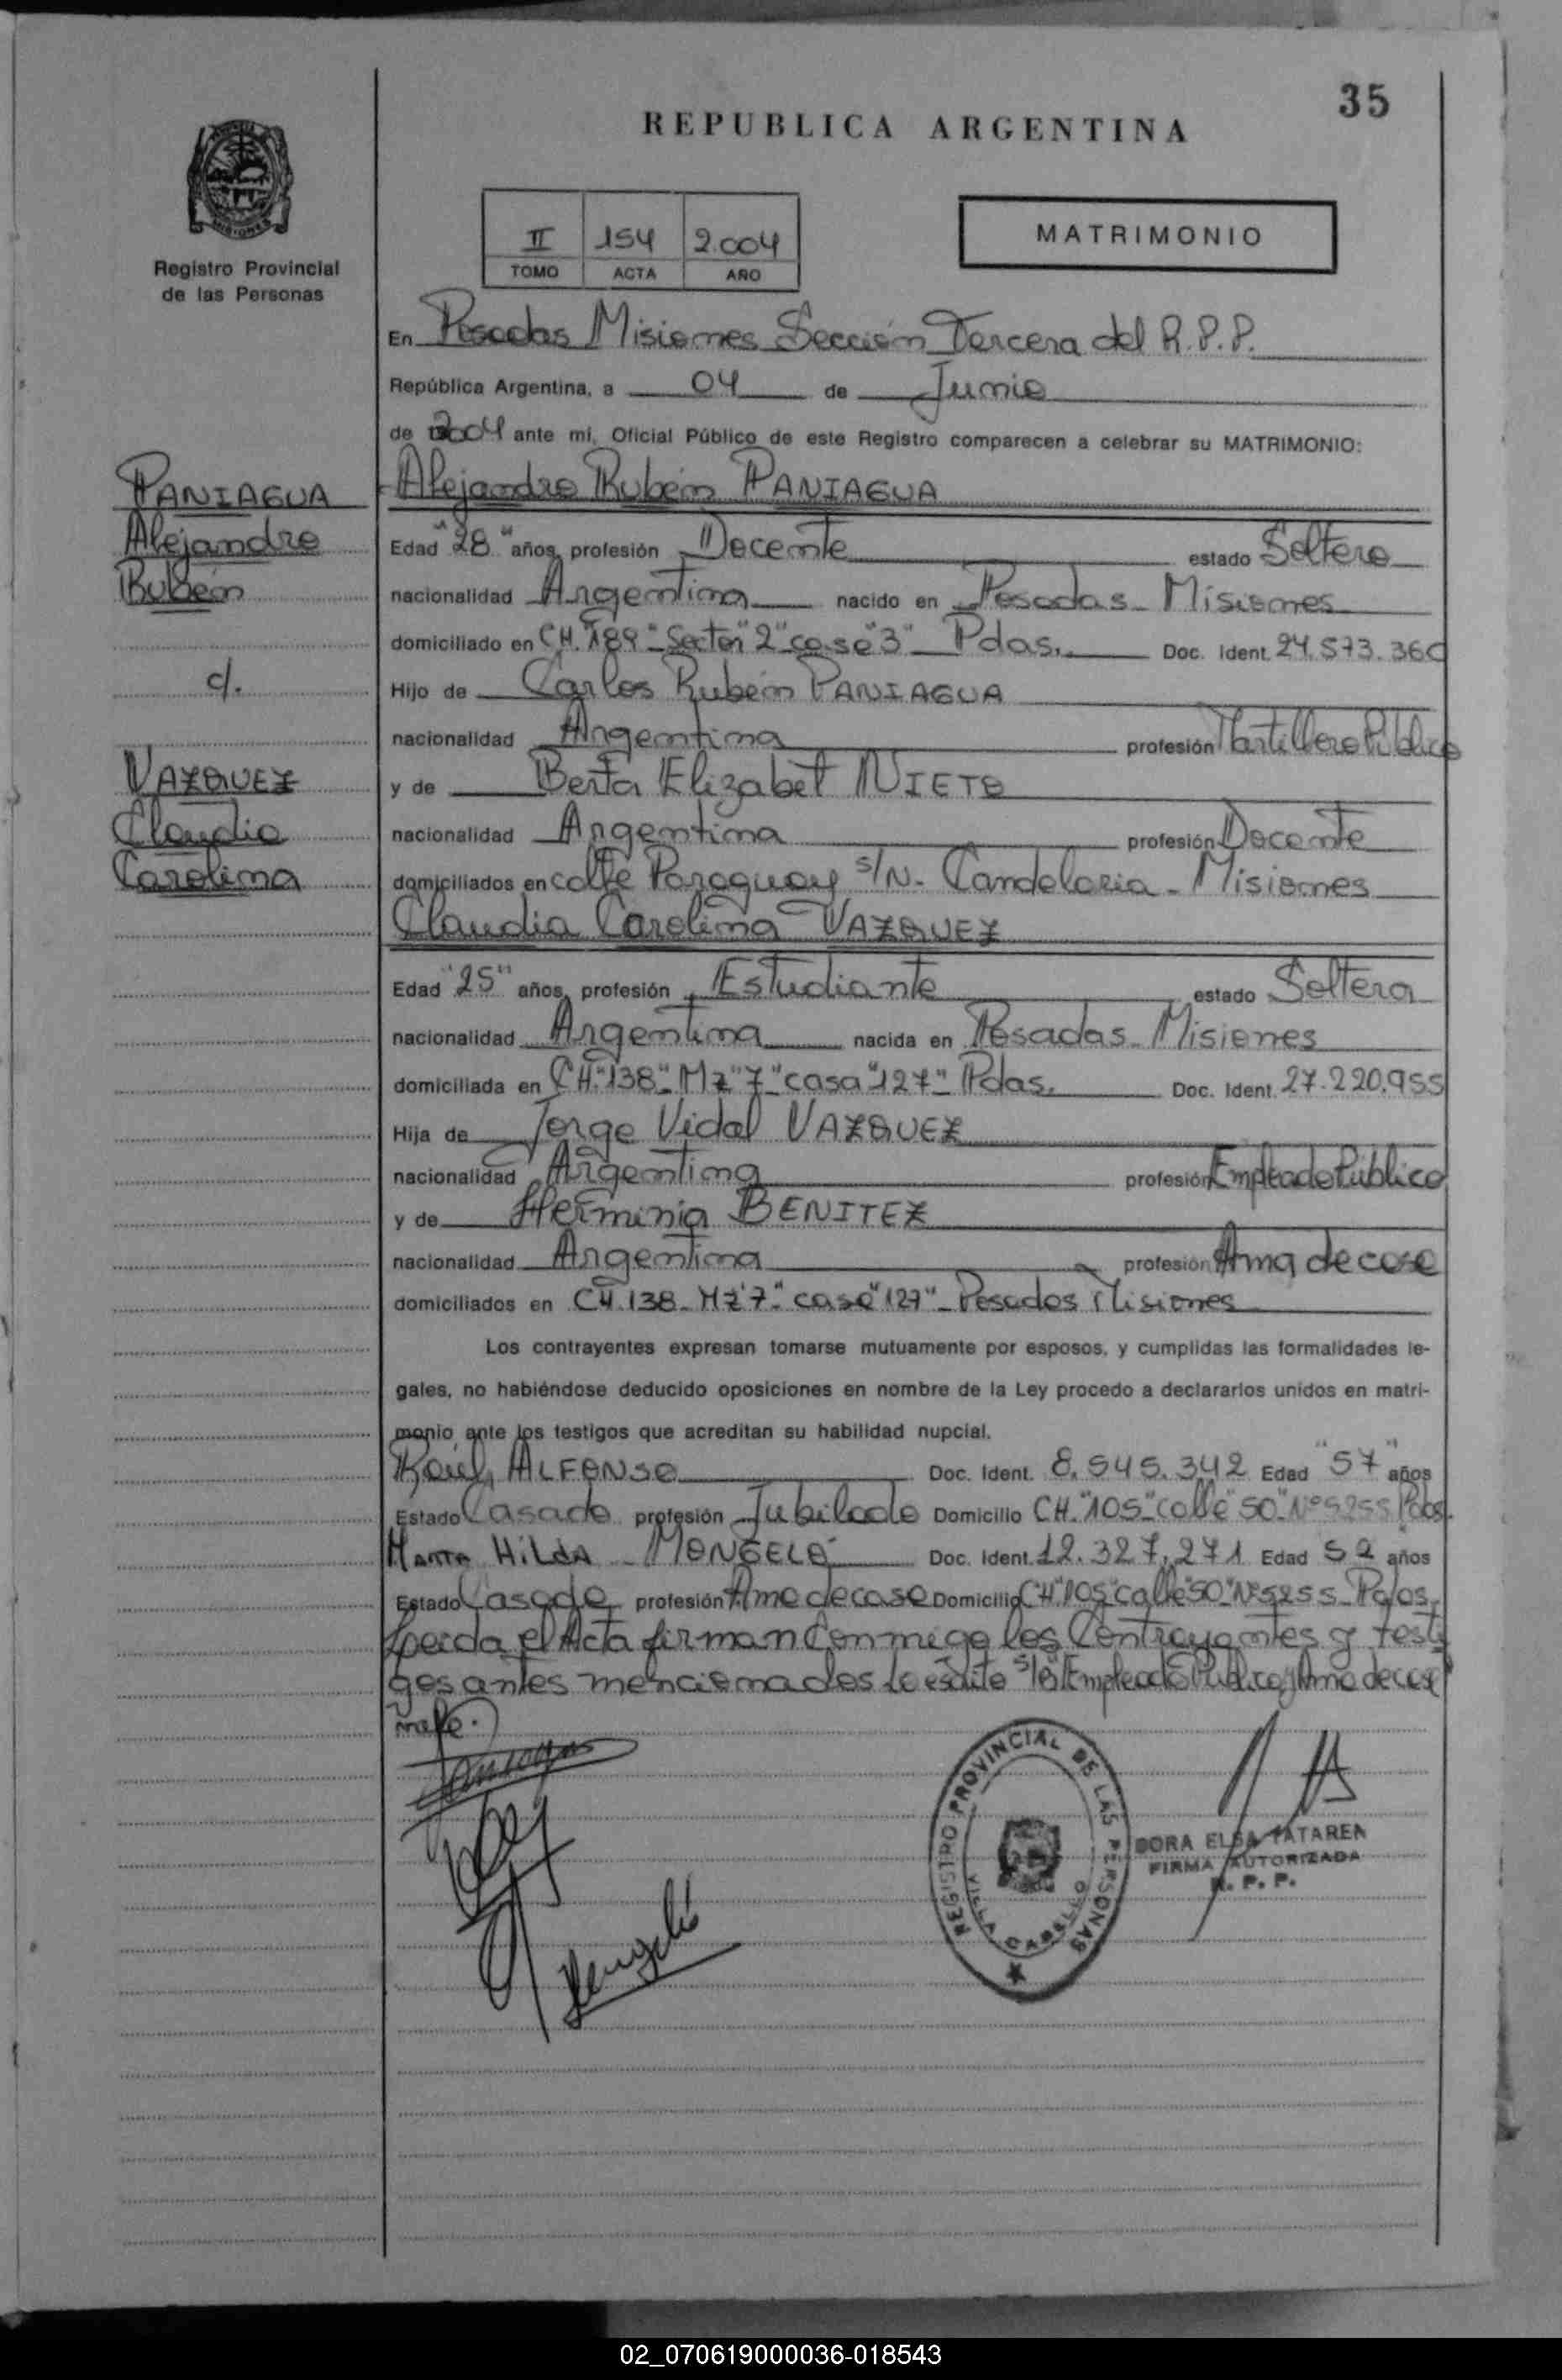 35
REPUBLICA ARGENTINA
MISIONES
Registro Provincial
de las Personas
II 154 2.004
TOMO ACTA AÑO
MATRIMONIO
En Posadas Misiones Sección Tercera del R.P.P.
República Argentina, a 04 de Junio
de 2004 ante mi, Oficial Público de este Registro comparecen a celebrar su MATRIMONIO:
PANIAGUA
Alejandro
Rubén
c/.
VAZQUEZ
Claudia
Carolina
Alejandro Rubén PANIAGUA
Edad "28" años, profesión Docente estado Soltero
nacionalidad Argentina nacido en Posadas - Misiones
domiciliado en CH. "189" - Sector "2" casa "3" - Pdas. Doc. Ident. 24.573.360
Hijo de Carlos Rubén PANIAGUA
nacionalidad Argentina profesión Martillero Público
y de Berta Elizabet NIETO
nacionalidad Argentina profesión Docente
domiciliados en calle Paraguay s/N - Candelaria - Misiones
Claudia Carolina VAZQUEZ
Edad "25" años, profesión Estudiante estado Soltera
nacionalidad Argentina nacida en Posadas - Misiones
domiciliada en CH. "138" - Mz "7" casa "127" - Pdas. Doc. Ident. 27.220.955
Hija de Jorge Vidal VAZQUEZ
nacionalidad Argentina profesión Empleado Público
y de Herminia BENITEZ
nacionalidad Argentina profesión Ama de casa
domiciliados en CH. 138 - Mz "7" - casa "127" - Posadas Misiones
Los contrayentes expresan tomarse mutuamente por esposos, y cumplidas las formalidades le-
gales, no habiéndose deducido oposiciones en nombre de la Ley procedo a declararlos unidos en matri-
monio ante los testigos que acreditan su habilidad nupcial.
Raúl ALFONSO Doc. Ident. 8.545.342 Edad "57" años
Estado Casado profesión Jubilado Domicilio CH. "105" calle "50" Nº 5255 Pdas.
MARTA HILDA MONGELO Doc. Ident. 12.327.271 Edad 52 años
Estado Casada profesión Ama de casa Domicilio CH "105" calle "50" Nº 5255 - Pdas.
Leída el Acta firman conmigo los Contrayentes y testi
gos antes mencionados Lo escrito s/b "Empleado Público y Ama de casa"
vale.
REGISTRO PROVINCIAL DE LAS PERSONAS
VILLA CABELLO
DORA ELSA TATAREN
FIRMA AUTORIZADA
R. P. P.
02_070619000036-018543